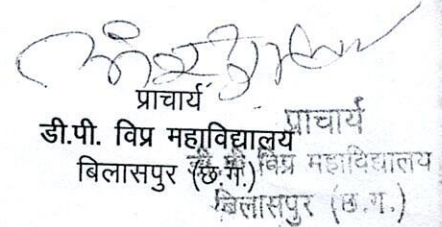 प्राचार्य
डी.पी. विप्र महाविद्यालय
बिलासपुर (छ.ग.)
प्राचार्य
डी.पी. विप्र महाविद्यालय
बिलासपुर (छ.ग.)